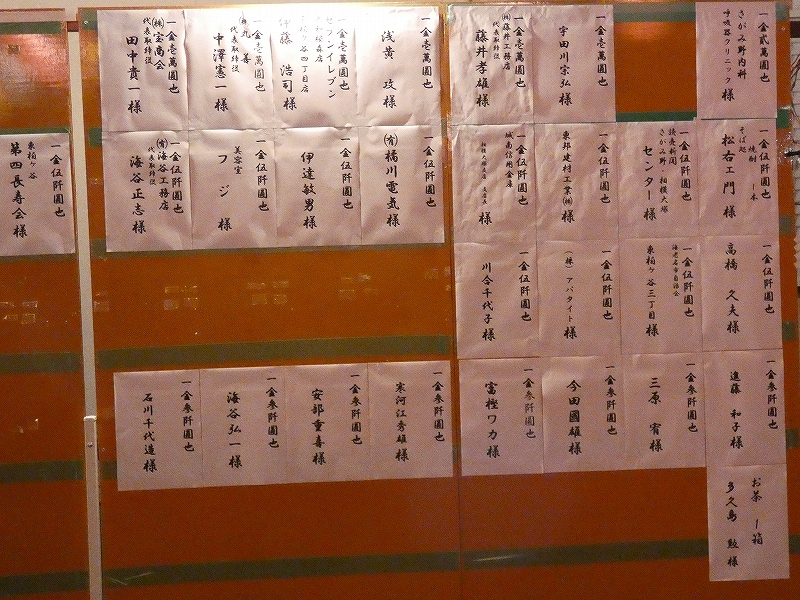 一金貳萬圓也
さがみ野内科
呼吸器クリニック様
一金壱萬圓也
宇田川宗弘様
一金壱萬圓也
㈱藤井工務店
代表取締役
藤井孝雄様
一金壱萬圓也
浅黄 攻様
一金壱萬圓也
セブンイレブン
伊藤 浩司様
一金壱萬圓也
㈱丸善
代表取締役
中澤憲一様
一金壱萬圓也
㈱宝商会
代表取締役
田中貴一様
一金伍阡圓也
焼酎 一本
そば処
松右エ門様
一金伍阡圓也
読売新聞
さがみ野・相模大塚
センター様
一金伍阡圓也
東邦建材工業㈱様
一金伍阡圓也
城南信用金庫
一金伍阡圓也
㈲橋川電気様
一金伍阡圓也
伊達敏男様
一金伍阡圓也
美容室
フジ様
一金伍阡圓也
㈲海谷工務店
代表取締役
海谷正志様
一金伍阡圓也
東柏ケ谷
第四長寿会様
一金伍阡圓也
高橋 久夫様
一金伍阡圓也
海老名市自治会
東柏ヶ谷三丁目様
一金伍阡圓也
(株)アパタイト様
一金伍阡圓也
川合千代子様
一金参阡圓也
進藤 和子様
一金参阡圓也
三原 宥様
一金参阡圓也
今田國雄様
一金参阡圓也
富樫ワカ様
一金参阡圓也
寒河江秀雄様
一金参阡圓也
安部重喜様
一金参阡圓也
海谷弘一様
一金参阡圓也
石川千代造様
お茶 一箱
多久島 勲様